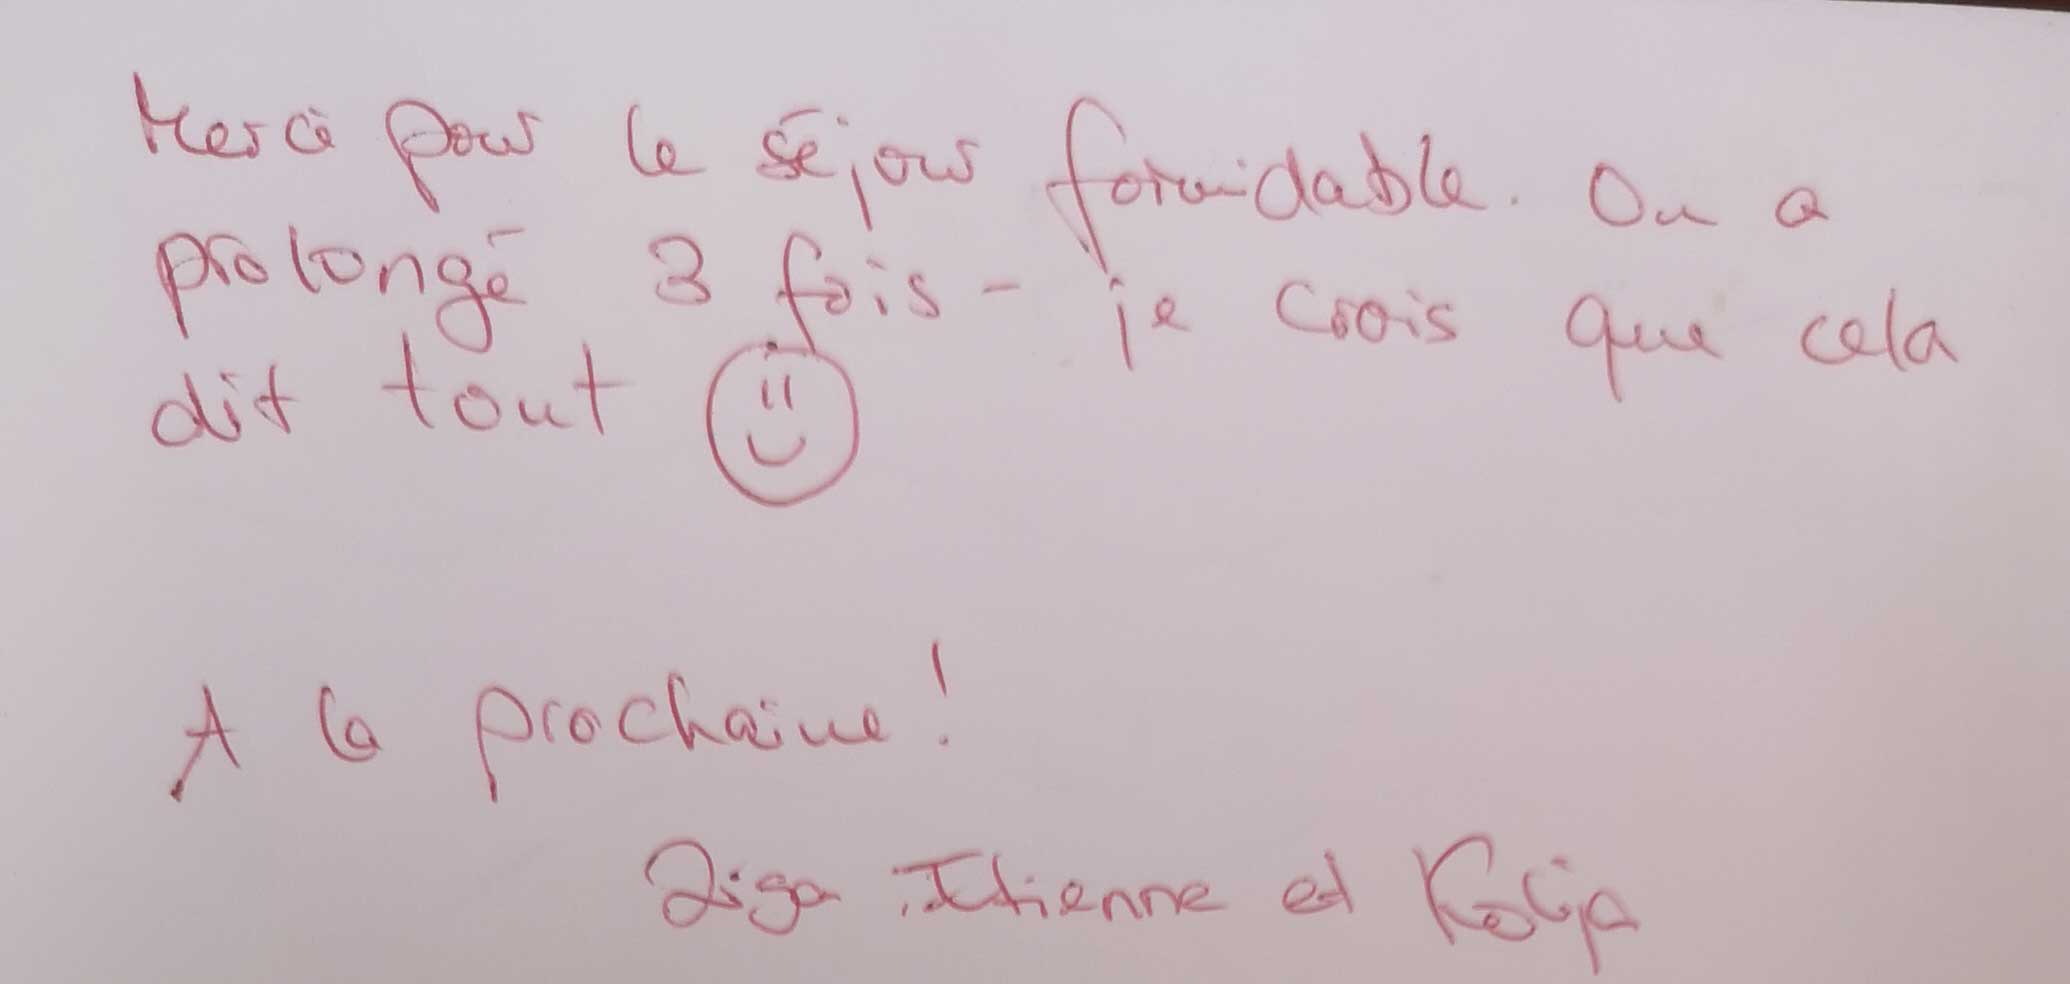 Merci pour le séjour formidable. On a
prolongé 3 fois - je crois que cela
dit tout
A la prochaine!
Etienne et Kolja